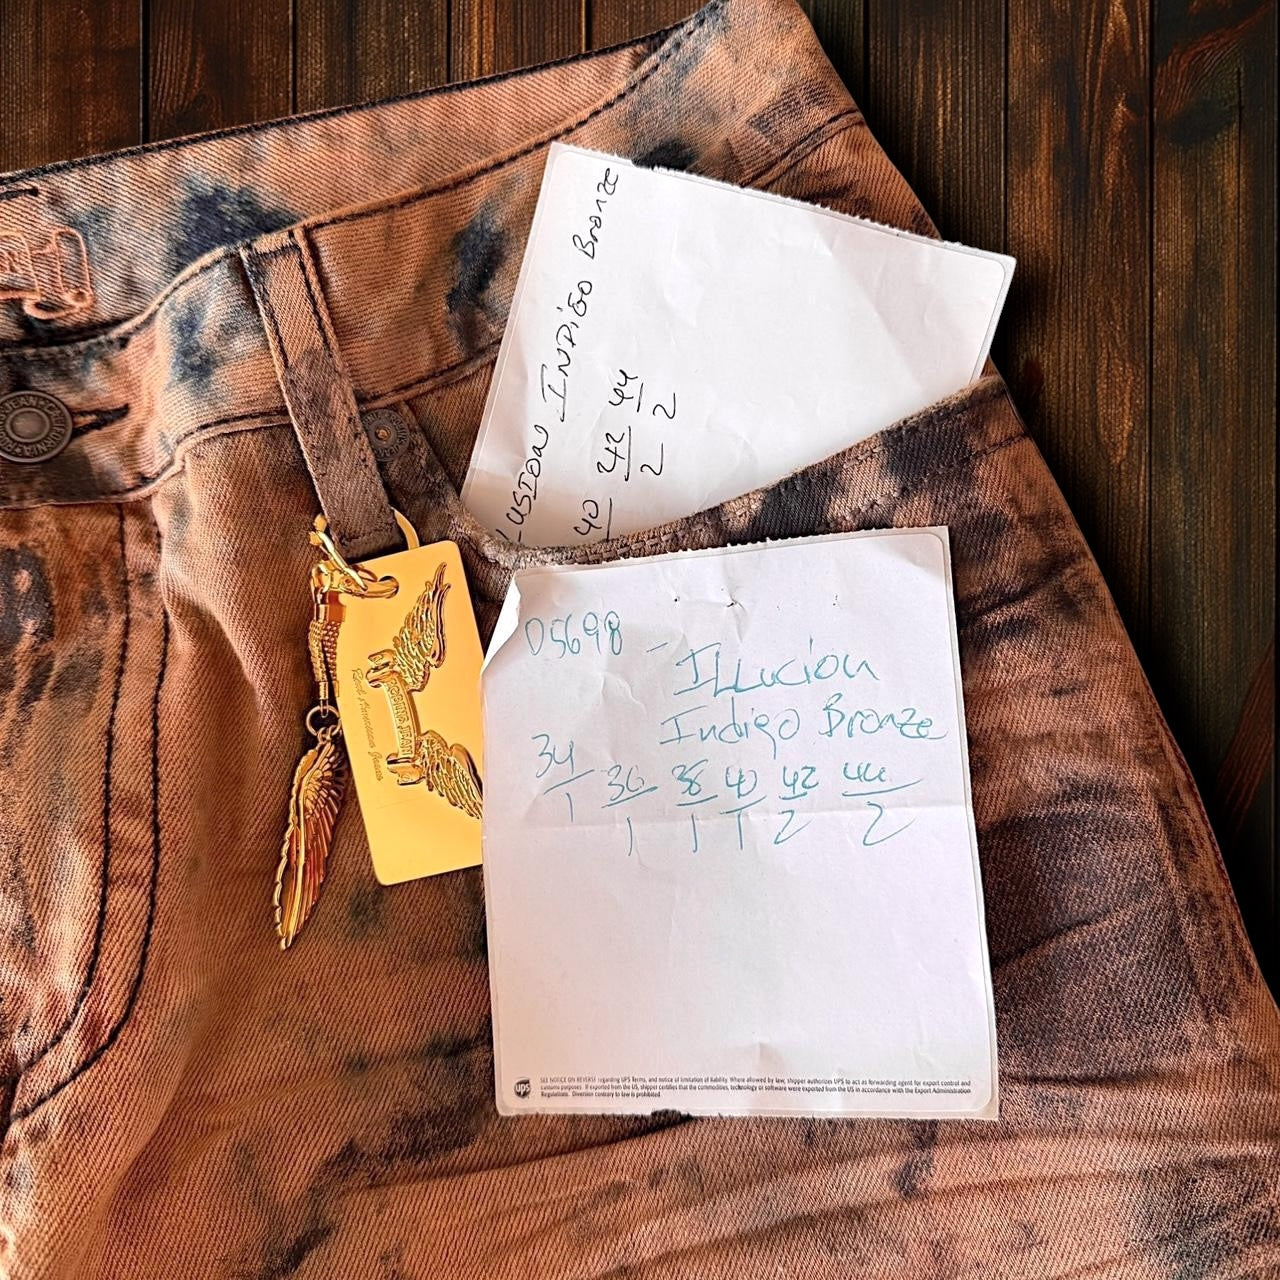 -USION INDIGO Bronze
40 42 44
2 2
05698 - ILLucion
Indigo Bronze
34 36 38 40 42 44
1 1 1 1 2 2
Real American Jeans
ups
SEE NOTICE ON REVERSE regarding UPS Terms, and notice of limitation of liability. Where allowed by law, shipper authorizes UPS to act as forwarding agent for export control and
customs purposes. If exported from the US, shipper certifies that the commodities, technology or software were exported from the US in accordance with the Export Administration
Regulations. Diversion contrary to law is prohibited.